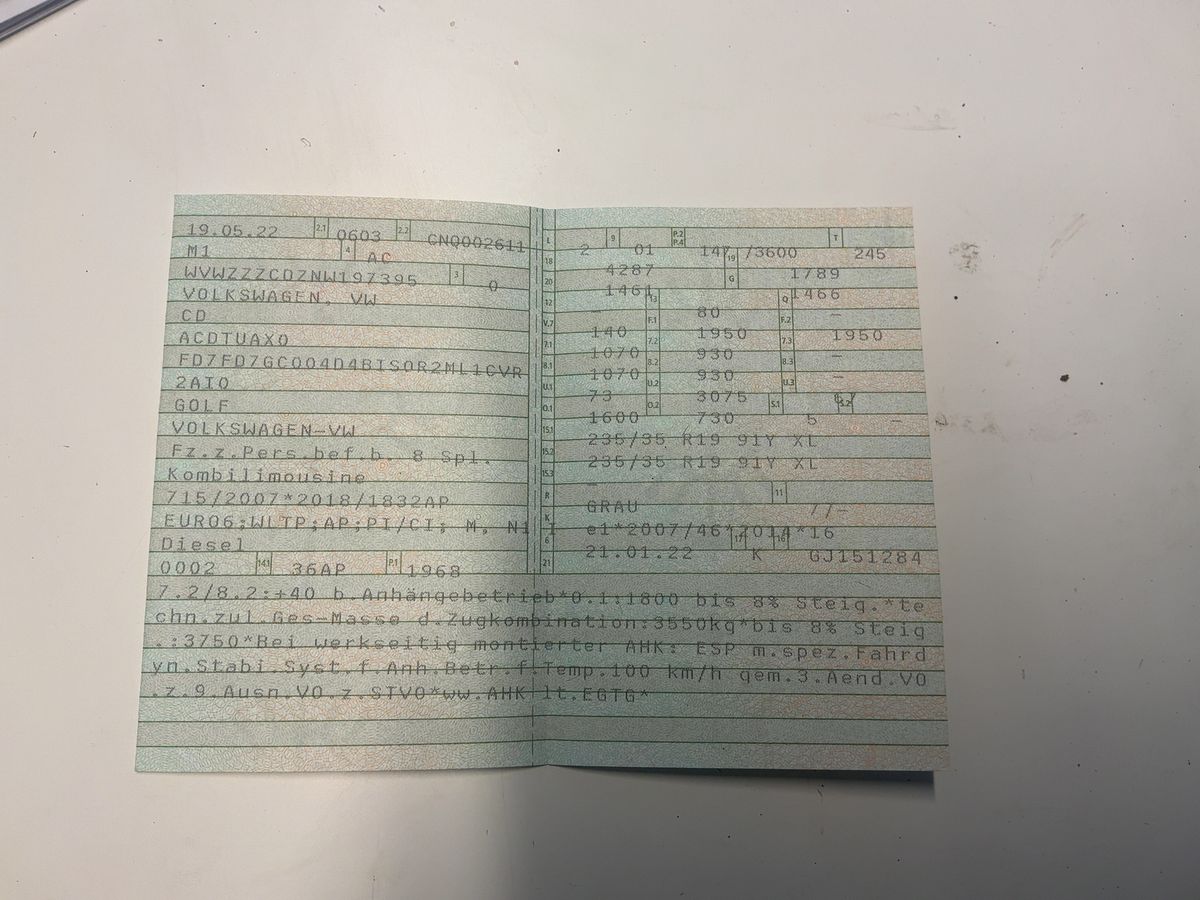 19.05.22 2.1 0603 2.2 CNQ002611
M1 4 AC
WVWZZZCDZNW197395 3 0
VOLKSWAGEN, VW
CD
ACDTUAX0
FD7FD7GC004D4BISOR2ML1CVR
2AI0
GOLF
VOLKSWAGEN-VW
Fz.z.Pers.bef.b. 8 Spl.
Kombilimousine
715/2007*2018/1832AP
EURO6;WLTP;AP;PI/CI; M, N1 I
Diesel
0002 14.1 36AP P.1 1968
L 2 9 01 P.2 P.4 147 /3600 T 245
18 4287 19 G 1789
20 1461 1466
12 - 13 80 Q -
V.7 140 F.1 1950 F.2 1950
7.1 1070 7.2 930 7.3 -
8.1 1070 8.2 930 8.3 -
U.1 73 U.2 3075 U.3
O.1 1600 O.2 730 S.1 5 S.2 -
15.1 235/35 R19 91Y XL
15.2 235/35 R19 91Y XL
15.3 -
R GRAU 11 77-
K e1*2007/46*2014*16
6 21.01.22 17 K 16 GJ151284
21
7.2/8.2:+40 b.Anhängebetrieb*0.1:1800 bis 8% Steig.*te
chn.zul.Ges-Masse d.Zugkombination:3550kg*bis 8% Steig
.:3750*Bei werkseitig montierter AHK: ESP m.spez.Fahrd
yn.Stabi.Syst.f.Anh.Betr.f.Temp.100 km/h gem.3.Aend.VO
.z.9.Ausn.VO.z.STVO*ww.AHK lt.EGTG*